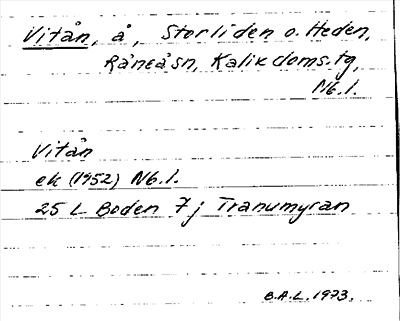 Vitån, å, Storliden o. Heden,
Råneåsn, Kalix doms.tg,
Nb.l.
Vitån
ek (1952) Nb.l.
25 L Boden 7 j Tranumyran
B.A.L. 1973.